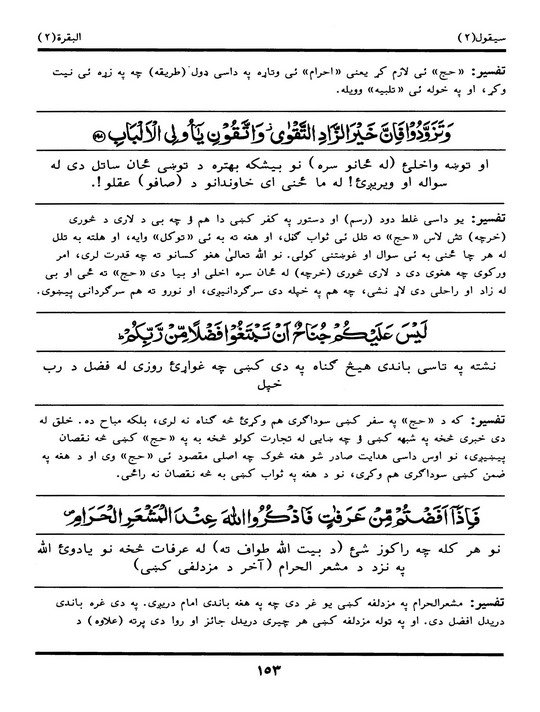 سيقول(٢)
البقرة(٢)
تفسير: «حج» ئې لازم کړ يعنې «احرام» ئې وتاړه په داسې ډول (طريقه) چه په زړه ئې نيت
وکړ، او په خوله ئې «تلبيه» وويله.
وَتَزَوَّدُوْا فَاِنَّ خَيْرَ الزَّادِ التَّقْوٰى وَاتَّقُوْنِ يٰٓاُولِى الْاَلْبَابِ
او توښه واخلئ (له ځانو سره) نو بيشکه بهتره د توښې ځان ساتل دى له
سواله او ويريږئ! له ما ځنى اى خاوندانو د (صافو) عقلو!.
تفسير: يو داسې غلط دود (رسم) او دستور په کفر کښې دا هم ؤ چه بې د لارى د ښورى
(خرچه) تش لاس «حج» ته تلل ئې ثواب ګڼل، او هغه ته به ئې «توکل» وايه، او هلته به تلل
له هر چا ځنى به ئې سوال او غوښتنې کولى. نو الله تعالىٰ هغو کسانو ته چه قدرت لرى، امر
ورکوى چه هغوى دى د لارى ښورى (خرچه) له ځان سره اخلى او بيا دى «حج» ته ځى او بې
له زاد او راحلى دى لاړ نشى، چه هم په خپله دى سرګردانيږى، او نورو ته هم سرګردانى پيښوى.
لَيْسَ عَلَيْكُمْ جُنَاحٌ اَنْ تَبْتَغُوْا فَضْلًا مِّنْ رَّبِّكُمْ ط
نشته په تاسې باندى هيڅ ګناه په دى کښې چه غواړئ روزى له فضل د رب
خپل
تفسير: که د «حج» په سفر کښې سوداګرى هم وکړئ څه ګناه نه لرى، بلکه مباح ده. خلق له
دى خبرى څخه په شبهه کښې ؤ چه ښايى له تجارت کولو څخه به په «حج» کښې څه نقصان
پيښيږى، نو اوس داسې هدايت صادر شو هغه څوک چه اصلى مقصود ئې «حج» وى او د هغه په
ضمن کښې سوداګرى هم وکړى، نو د هغه په ثواب کښې به څه نقصان نه راځى.
فَاِذَآ اَفَضْتُمْ مِّنْ عَرَفٰتٍ فَاذْكُرُوا اللّٰهَ عِنْدَ الْمَشْعَرِ الْحَرَامِ
نو هر کله چه راکوز شئ (د بيت الله طواف ته) له عرفات څخه نو يادوئ الله
په نزد د مشعر الحرام (آخر د مزدلفى کښې)
تفسير: مشعرالحرام په مزدلفه کښې يو غر دى چه په هغه باندى امام دريږى. په دى غره باندى
دريدل افضل دى. او په توله مزدلفه کښې هر چيرى دريدل جائز او روا دى پرته (علاوه) د
١٥٣